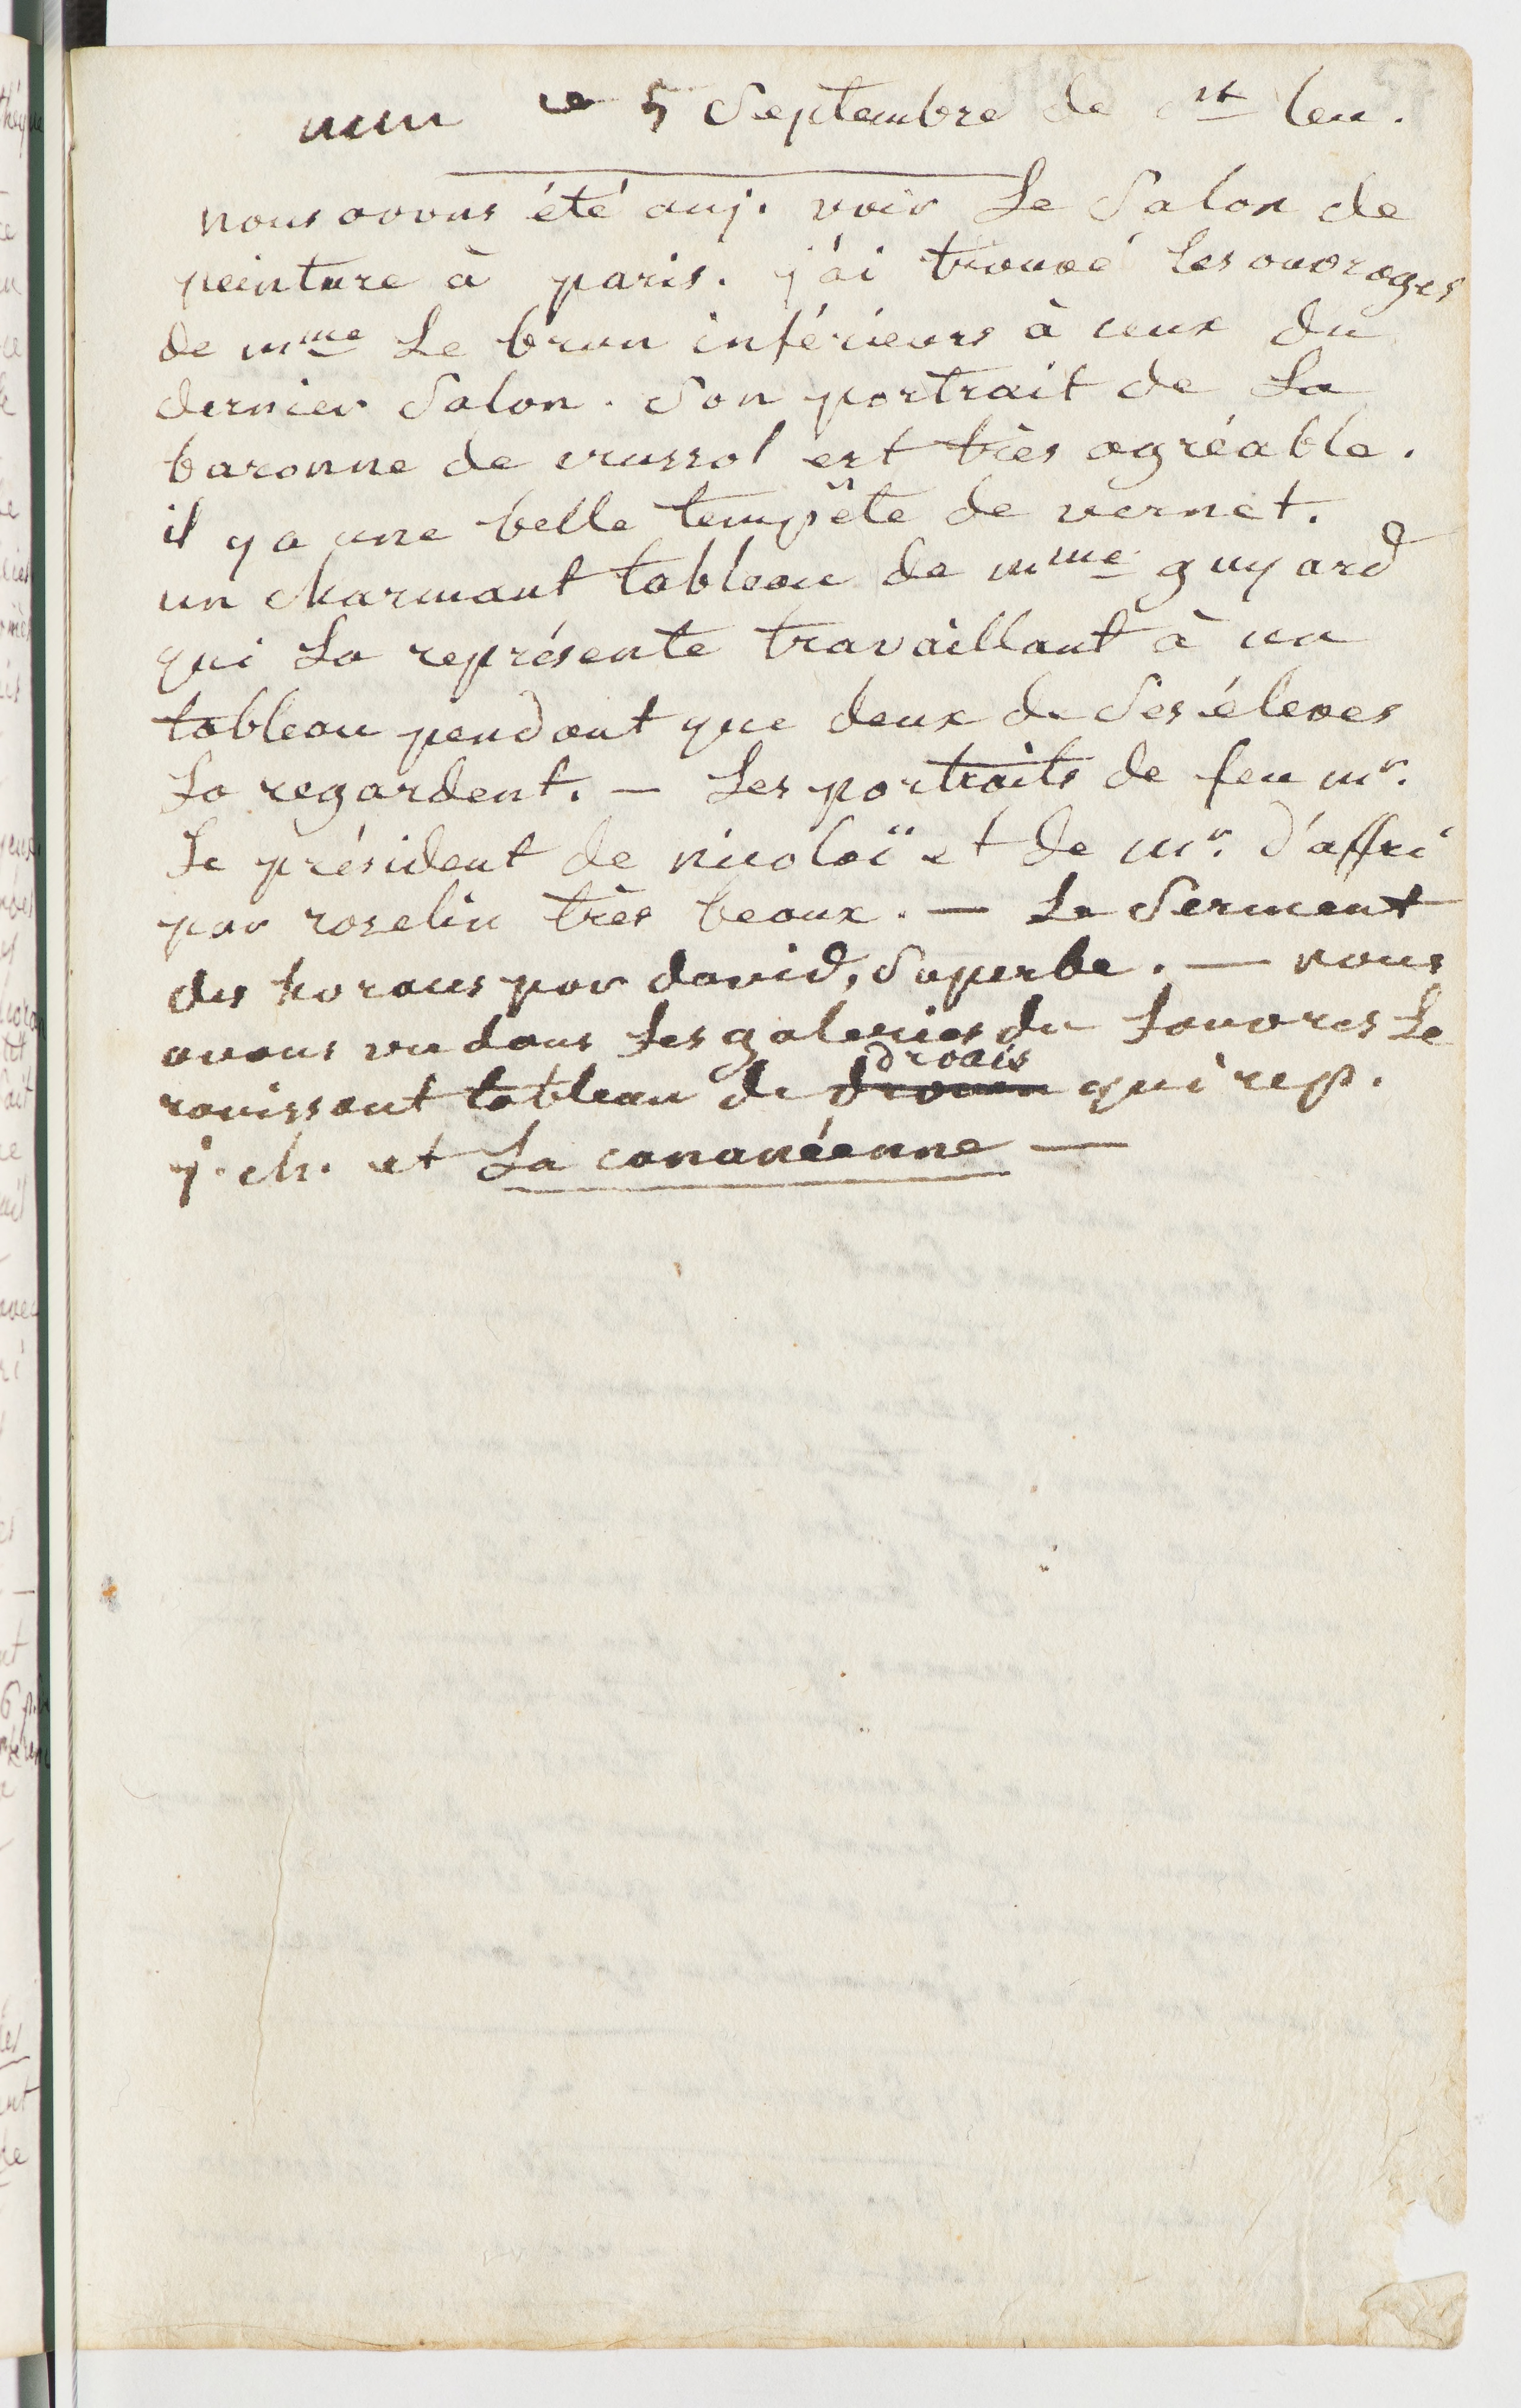 ce 5 Septembre de st leu.
nous avons été auj. voir Le Salon de
peinture à paris. j'ai trouvé Les ouvrages
de mme Le brun inférieurs à ceux du
dernier Salon. Son portrait de La
baronne de crussol est très agréable.
il y a une belle tempête de vernet.
un charmant tableau de mme guyard
qui La représente travaillant à un
tableau pendant que deux de Ses éleves
La regardent. — Les portraits de feu mr.
Le président de nicolaï et de mr. d'affri
par roselin très beaux. — Le Serment
des horaces par david, Superbe. — nous
avons vu dans Les galeries du Louvres Le
drouais
ravissant tableau de qui rep.
j. ch. et La cananéenne —